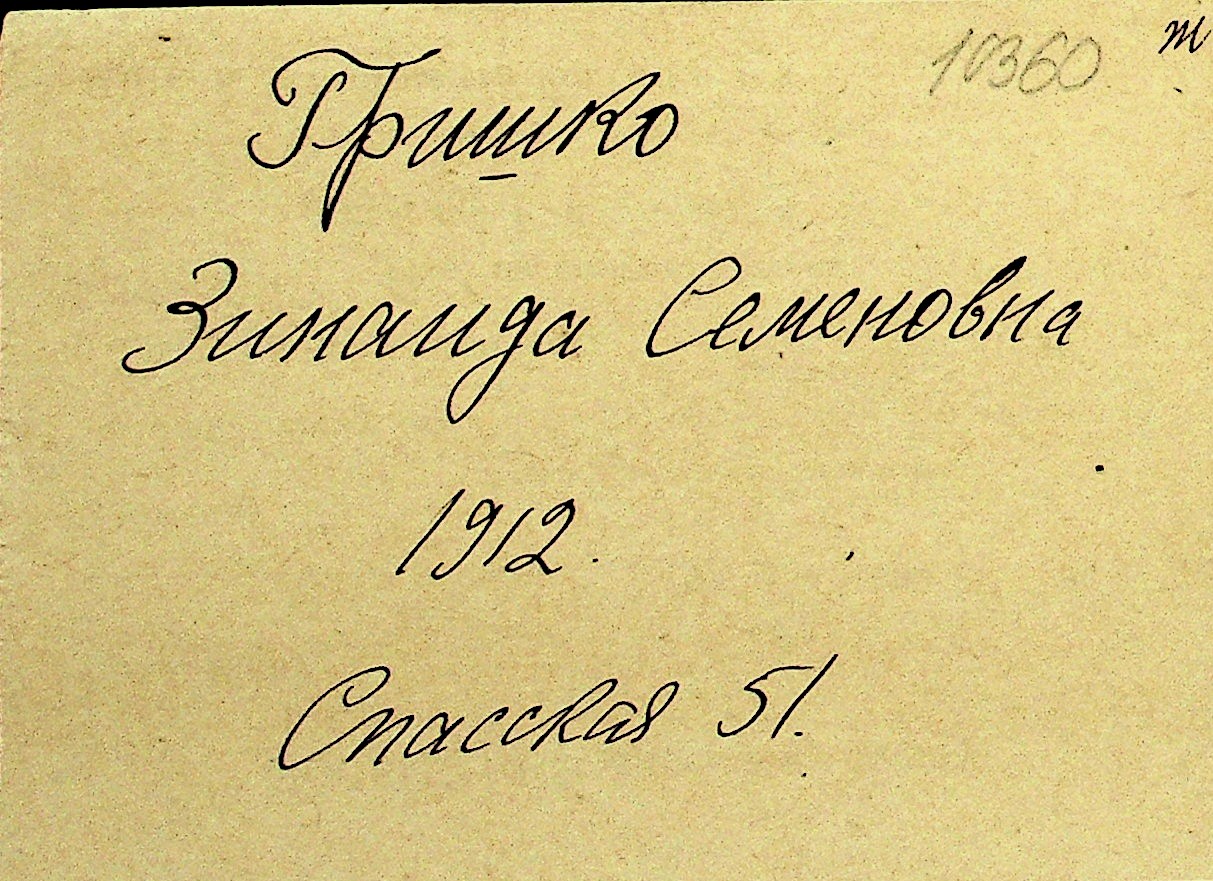 10360 т
Гришко
Зинаида Семеновна
1912.
Спасская 51.